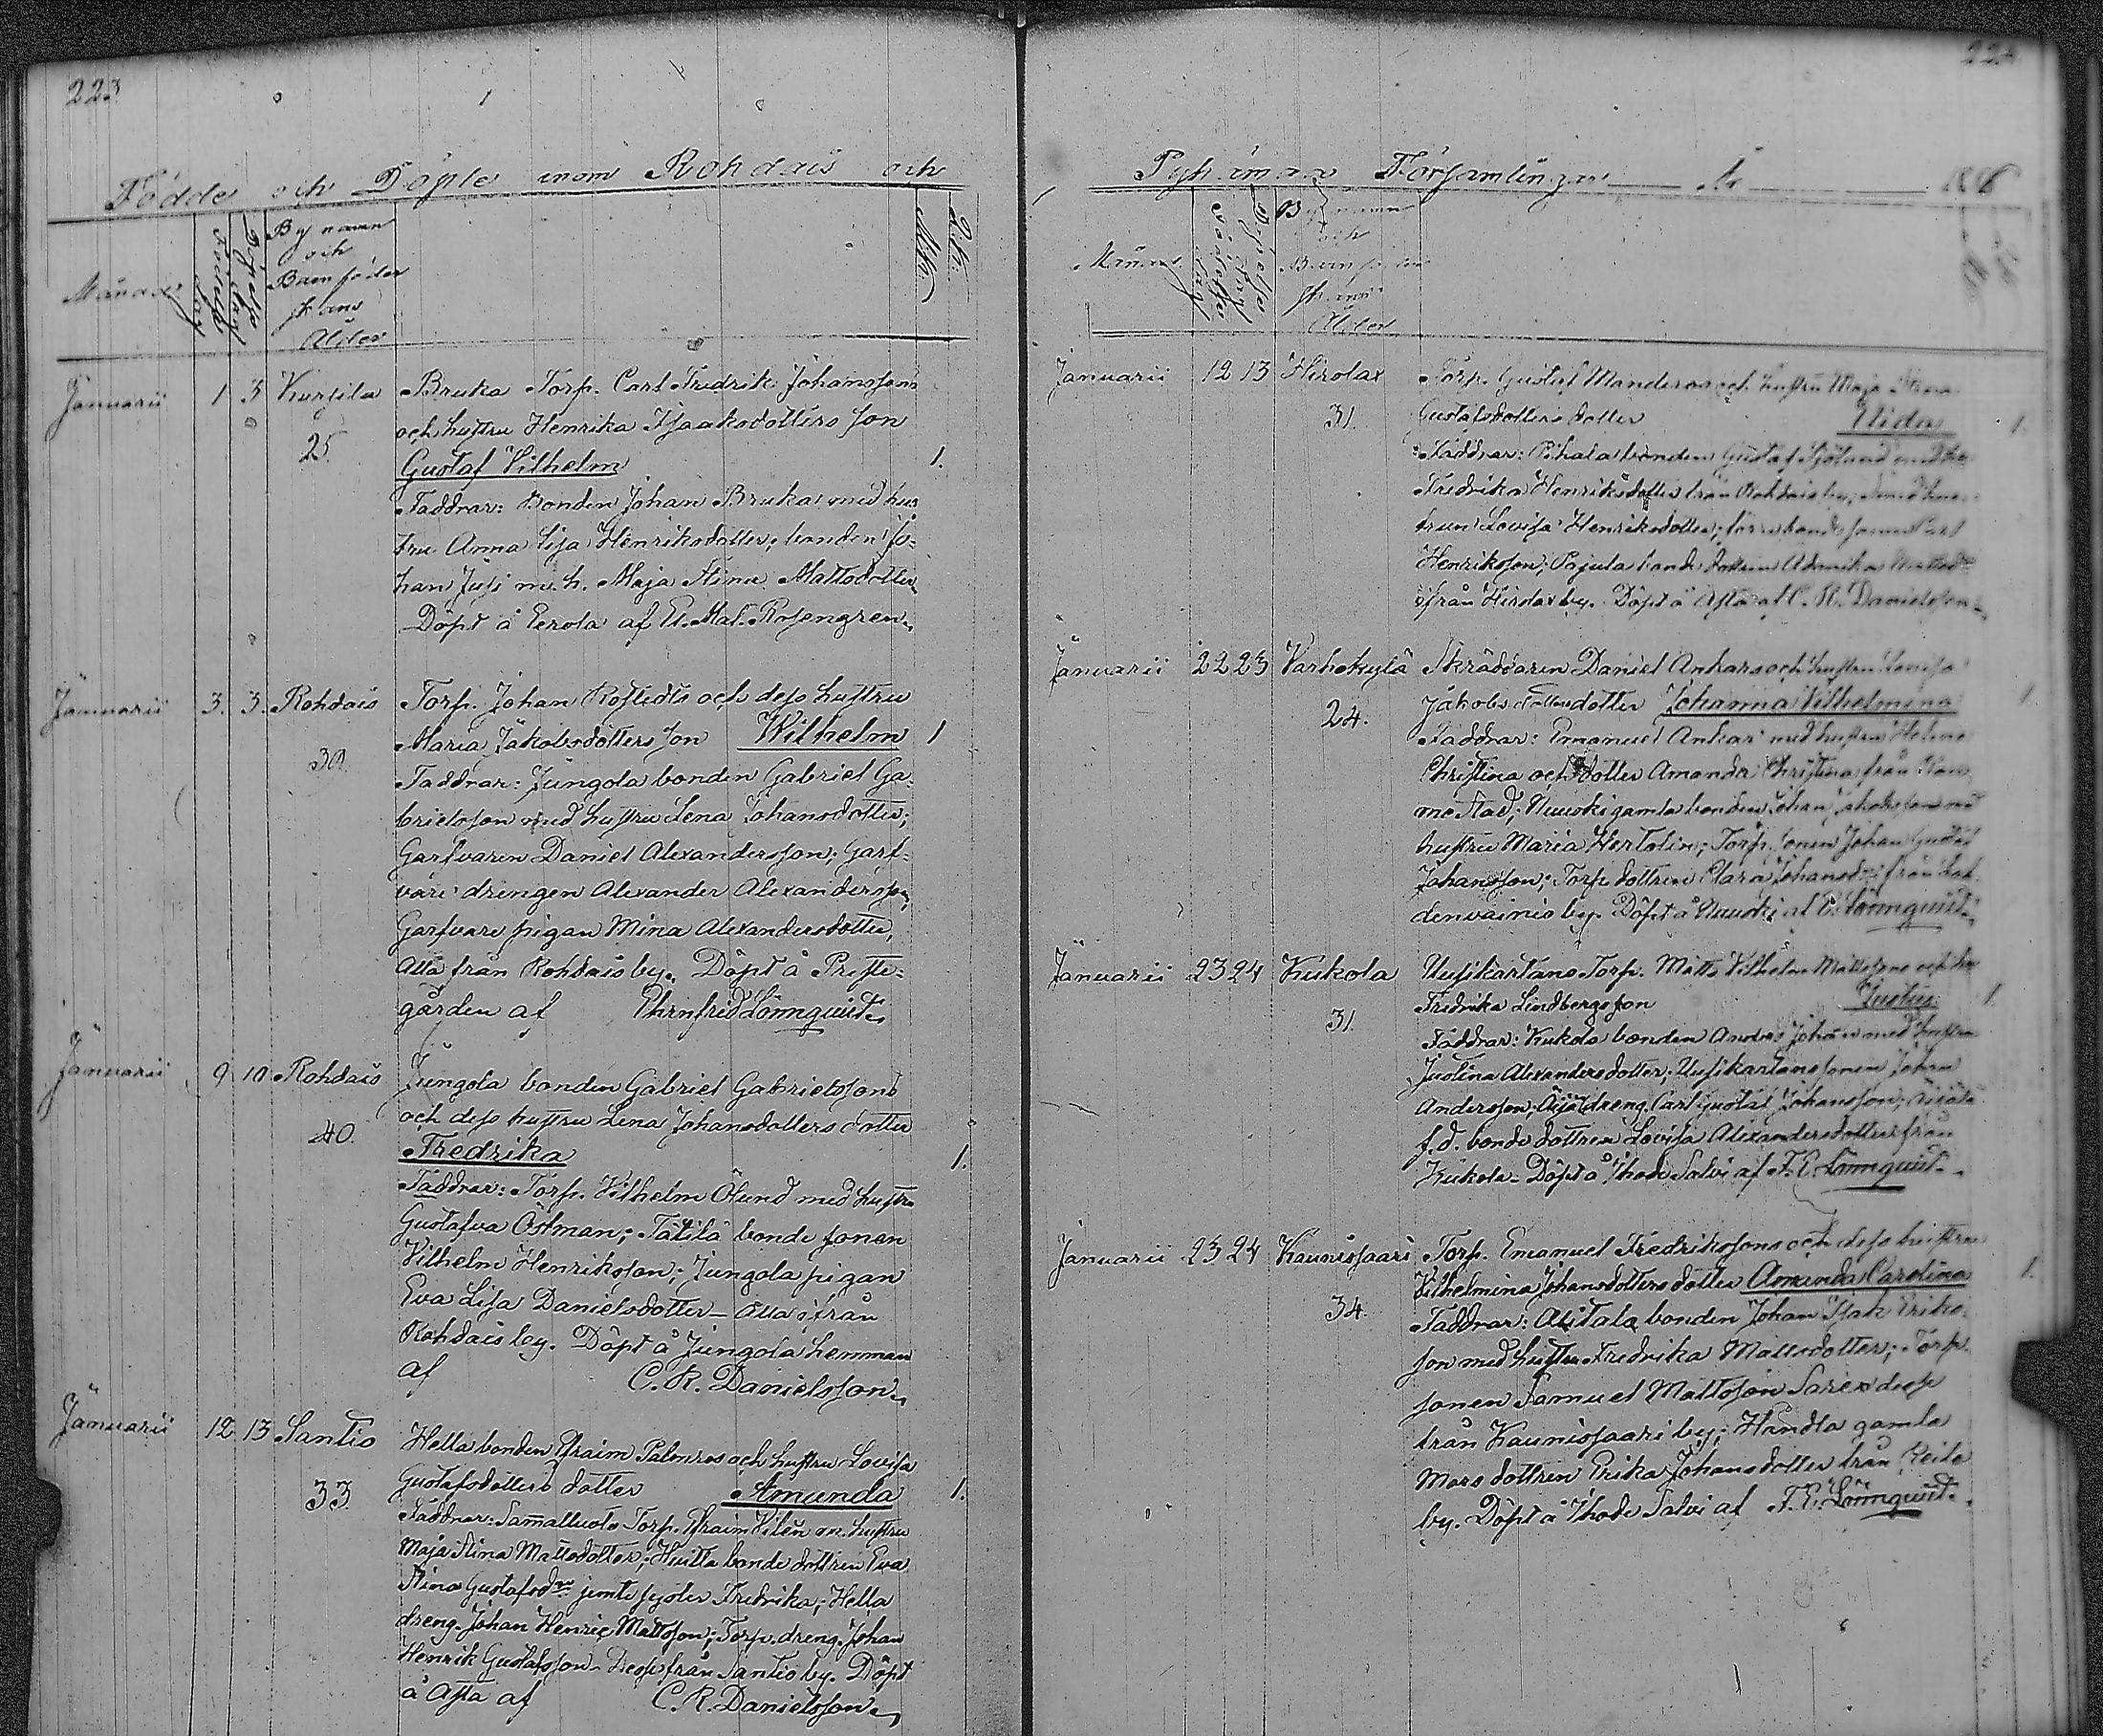 223
Födde och Döpte inom Rohdais och
Månad
Födelse dag
Döpelse dag
By namn
och
Barnföder
skans
Ålder
Mk.
Qk.
Januarii 1 3 Kursila Bruka Torp. Carl Fredrik Johanssons
och hustru Henrika Isaaksdotters son
25. Gustaf Vilhelm 1.
Faddrar: Bonden Johan Bruka med hus
tru Anna Lisa Henriksdotter; bonden Jo-
han Jusi m. h. Maja Stina Mattsdotter
Döpt å Eerola af El. Mat. Rosengren.
Januarii 3. 3. Rohdais Torp. Johan Rostedts och dess hustru
Maria Jakobsdotters son Wilhelm 1
30. Faddrar: Jungola bonden Gabriel Ga-
brielsson med hustru Lena Johansdotter;
Garfvaren Daniel Alexandersson; Garf-
vare drengen Alexander Alexandersson,
Garfvare pigan Mina Alexandersdotter,
Alla från Rohdais by. Döpt å Preste-
gården af Ehrnfrid Lönnquist.
Januarii 9 10 Rohdais Jungola bonden Gabriel Gabrielssons
och dess hustru Lena Johansdotters dotter
40. Fredrika 1.
Faddrar: Torp. Vilhelm Ölund med hustru
Gustafva Östman; Tätilä bonde sonen
Vilhelm Henriksson; Jungola pigan
Eva Lisa Danielsdotter – Alla ifrån
Rohdais by. Döpt å Jungola hemman
af C. R. Danielsson.
Januarii 12 13 Santio Hella bonden Efraim Palmros och hustru Lovisa
Gustafsdotters dotter Amanda 1.
33. Faddrar: Sammalluoto Torp. Efraim Vilén m. hustru
Maja Stina Mattsdotter; Huitta bonde dottren Eva
Stina Gustafsdr jemte syster Fredrika; Hella
dreng. Johan Henric Mattsson; Torp. dreng. Johan
Henrik Gustafsson – Desse från Santio by. Döpt
å Asta af C. R. Danielsson.
Pyhämaa Församlingar År 1886
Månad
Födelse dag
Döpelse dag
By namn
och
Barnföder
skans
Ålder
Januarii 12 13 Hirolax Torp. Gustaf Manderos och hustru Maja Stina
31. Gustafsdotters dotter Aida 1.
Faddrar: Pihala bonden Gustaf Sjölund med hu
Fredrika Henriksdotter från Rohdais by; Smed hus-
trun Lovisa Henriksdotter; bonde sonen Carl
Henriksson; Pajula bonde dottren Adamika
från Hirolax by. Döpt å Asta af C. R. Danielsson.
Januarii 22 23 Varhokylä Skräddaren Daniel Ankars och hustru Lovisa
24. Jakobs dotters dotter Johanna Vilhelmina 1
Faddrar: Emanuel Ankar med hustru Helena
Christina och dotter Amanda Christina från
stad; Nuuski gamla bonden Johan Jakobsson med
hustru Maria Hertolin; Torp. sonen Johan Gustaf
Johansson; Torp. dottren Clara Johansdr från Lah-
denvainio by. Döpt å Nuuski af E. Lönnquist.
Januarii 23 24 Kukola Uusikartano Torp. Matts Vilhelm Mattssons och hu
Fredrika Lindbergs son Justus. 1.
31. Faddrar: Kukola bonden Anders Johan med hustru
Justina Alexandersdotter; Uusikartano sonen Johan
Andersson; Äijälä dreng. Carl Gustaf Johansson; Äijälä
f.d. bonde dottren Lovisa Alexandersdotter från
Kukola – Döpt å Ihode Salvi af F. E. Lönnquist.
Januarii 23 24 Kaunissaari Torp. Emanuel Fredrikssons och dess hustru
Vilhelmina Johansdotters dotter Amanda Carolina 1.
34. Faddrar: Alitalo bonden Johan Isak Eriks-
son med hustru Fredrika Mattsdotter; Torp.
sonen Samuel Mattsson Saren desse
från Kaunissaari by; Handla gamla
Mors dottren Erika Johansdotter från Reila
by. Döpt å Ihode Salvi af F. E. Lönnquist.